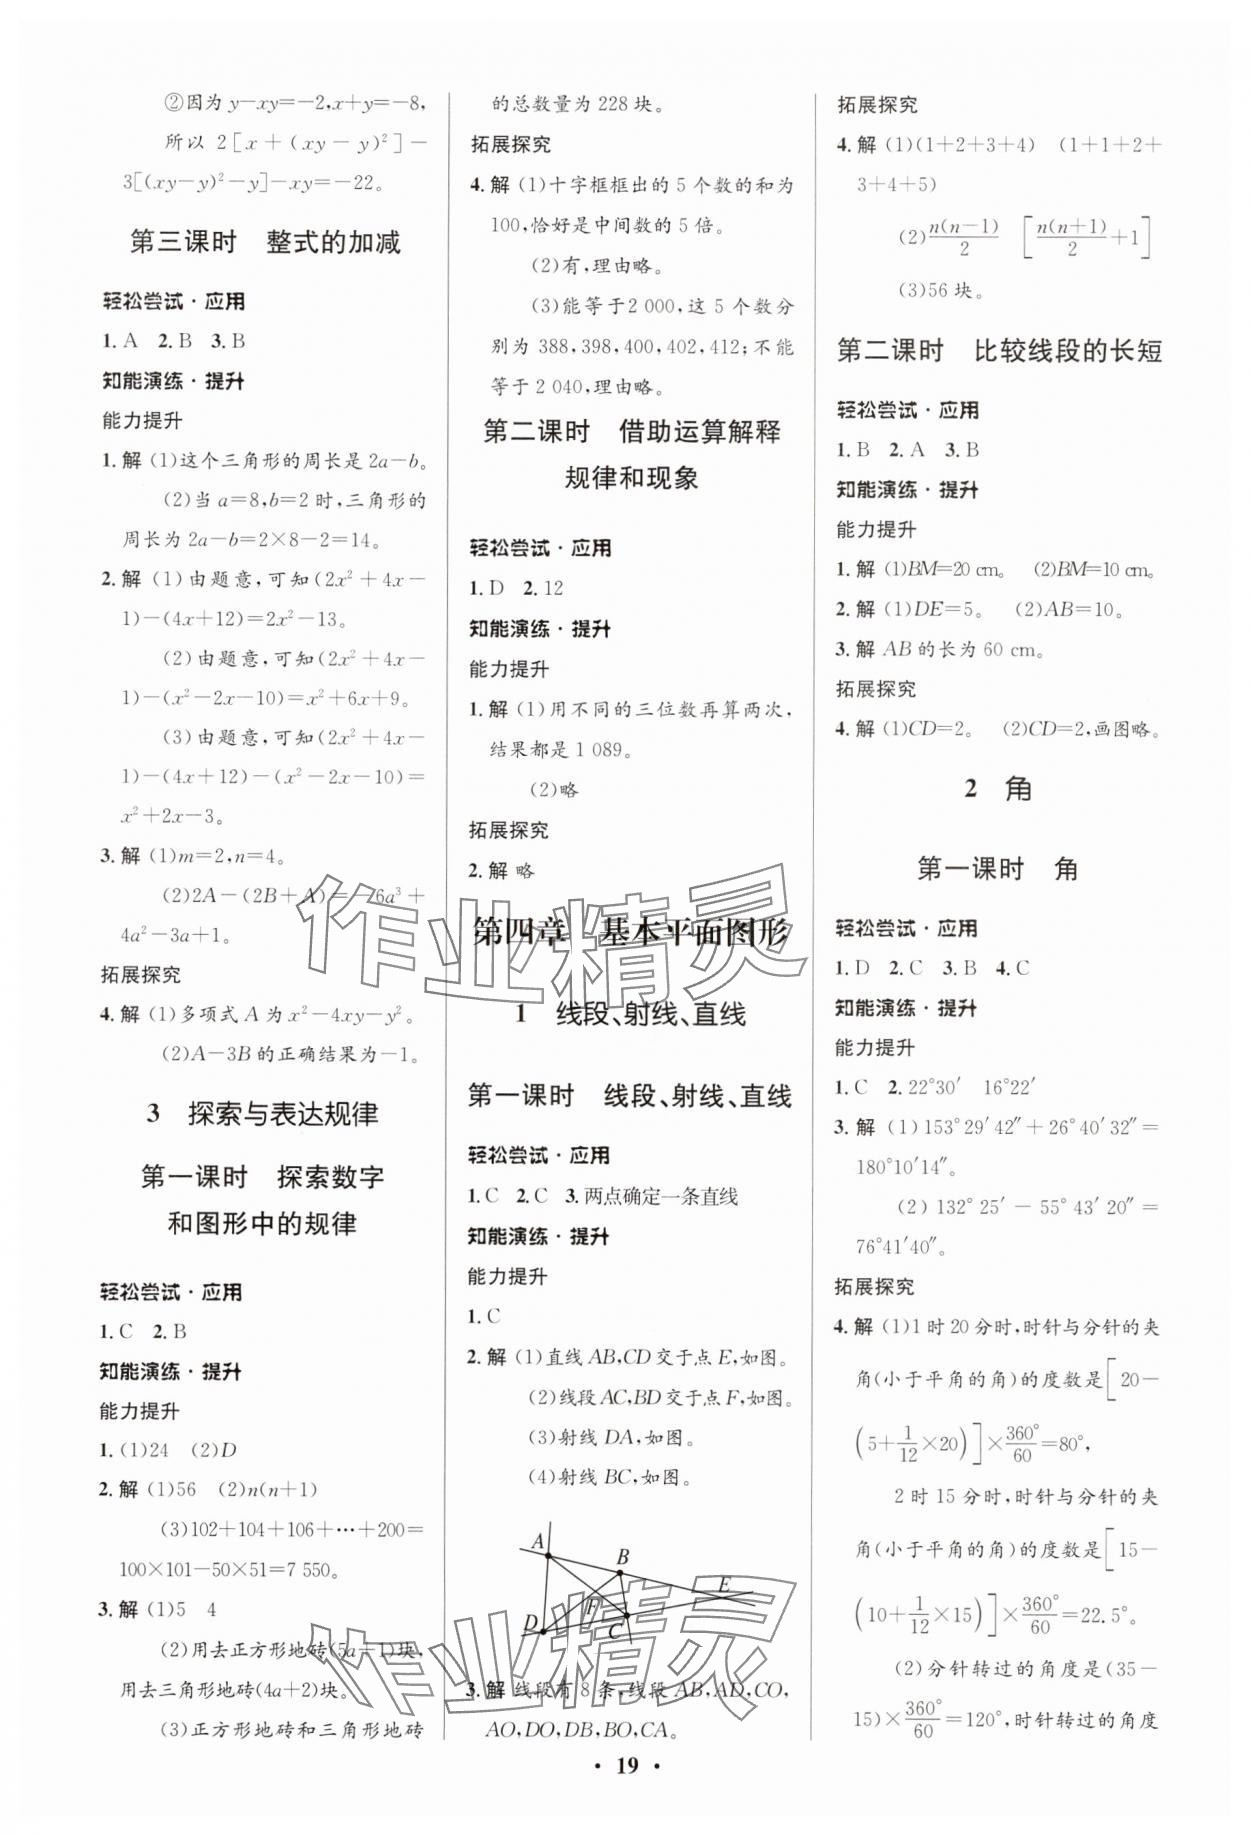 ②因为 y－xy＝－2,x＋y＝－8,
所以 2[x＋(xy－y)²]－
3[(xy－y)²－y]－xy＝－22。
第三课时　整式的加减
轻松尝试·应用
1. A　2. B　3. B
知能演练·提升
能力提升
1. 解 (1)这个三角形的周长是 2a－b。
(2)当 a＝8,b＝2 时,三角形的
周长为 2a－b＝2×8－2＝14。
2. 解 (1)由题意,可知(2x²＋4x－
1)－(4x＋12)＝2x²－13。
(2)由题意,可知(2x²＋4x－
1)－(x²－2x－10)＝x²＋6x＋9。
(3)由题意,可知(2x²＋4x－
1)－(4x＋12)－(x²－2x－10)＝
x²＋2x－3。
3. 解 (1)m＝2,n＝4。
(2)2A－(2B＋A)＝－6a³＋
4a²－3a＋1。
拓展探究
4. 解 (1)多项式 A 为 x²－4xy－y²。
(2)A－3B 的正确结果为－1。
3　探索与表达规律
第一课时　探索数字
和图形中的规律
轻松尝试·应用
1. C　2. B
知能演练·提升
能力提升
1. (1)24　(2)D
2. 解 (1)56　(2)n(n＋1)
(3)102＋104＋106＋…＋200＝
100×101－50×51＝7 550。
3. 解 (1)5　4
(2)用去正方形地砖(5a＋1)块,
用去三角形地砖(4a＋2)块。
(3)正方形地砖和三角形地砖
的总数量为 228 块。
拓展探究
4. 解 (1)十字框框出的 5 个数的和为
100,恰好是中间数的 5 倍。
(2)有,理由略。
(3)能等于 2 000,这 5 个数分
别为 388,398,400,402,412;不能
等于 2 040,理由略。
第二课时　借助运算解释
规律和现象
轻松尝试·应用
1. D　2. 12
知能演练·提升
能力提升
1. 解 (1)用不同的三位数再算两次,
结果都是 1 089。
(2)略
拓展探究
2. 解 略
第四章　基本平面图形
1　线段、射线、直线
第一课时　线段、射线、直线
轻松尝试·应用
1. C　2. C　3. 两点确定一条直线
知能演练·提升
能力提升
1. C
2. 解 (1)直线 AB,CD 交于点 E,如图。
(2)线段 AC,BD 交于点 F,如图。
(3)射线 DA,如图。
(4)射线 BC,如图。
A
B
E
F
D
C
3. 解 线段有 8 条,线段 AB,AD,CO,
AO,DO,DB,BO,CA。
拓展探究
4. 解 (1)(1＋2＋3＋4)　(1＋1＋2＋
3＋4＋5)
(2)n(n－1)/2　[n(n＋1)/2＋1]
(3)56 块。
第二课时　比较线段的长短
轻松尝试·应用
1. B　2. A　3. B
知能演练·提升
能力提升
1. 解 (1)BM＝20 cm。　(2)BM＝10 cm。
2. 解 (1)DE＝5。　(2)AB＝10。
3. 解 AB 的长为 60 cm。
拓展探究
4. 解 (1)CD＝2。　(2)CD＝2,画图略。
2　角
第一课时　角
轻松尝试·应用
1. D　2. C　3. B　4. C
知能演练·提升
能力提升
1. C　2. 22°30′　16°22′
3. 解 (1)153°29′42″＋26°40′32″＝
180°10′14″。
(2)132°25′－55°43′20″＝
76°41′40″。
拓展探究
4. 解 (1)1 时 20 分时,时针与分针的夹
角(小于平角的角)的度数是[20－
(5＋1/12×20)]×360°/60＝80°,
2 时 15 分时,时针与分针的夹
角(小于平角的角)的度数是[15－
(10＋1/12×15)]×360°/60＝22.5°。
(2)分针转过的角度是(35－
15)×360°/60＝120°,时针转过的角度
·19·
作业精灵
作业精灵